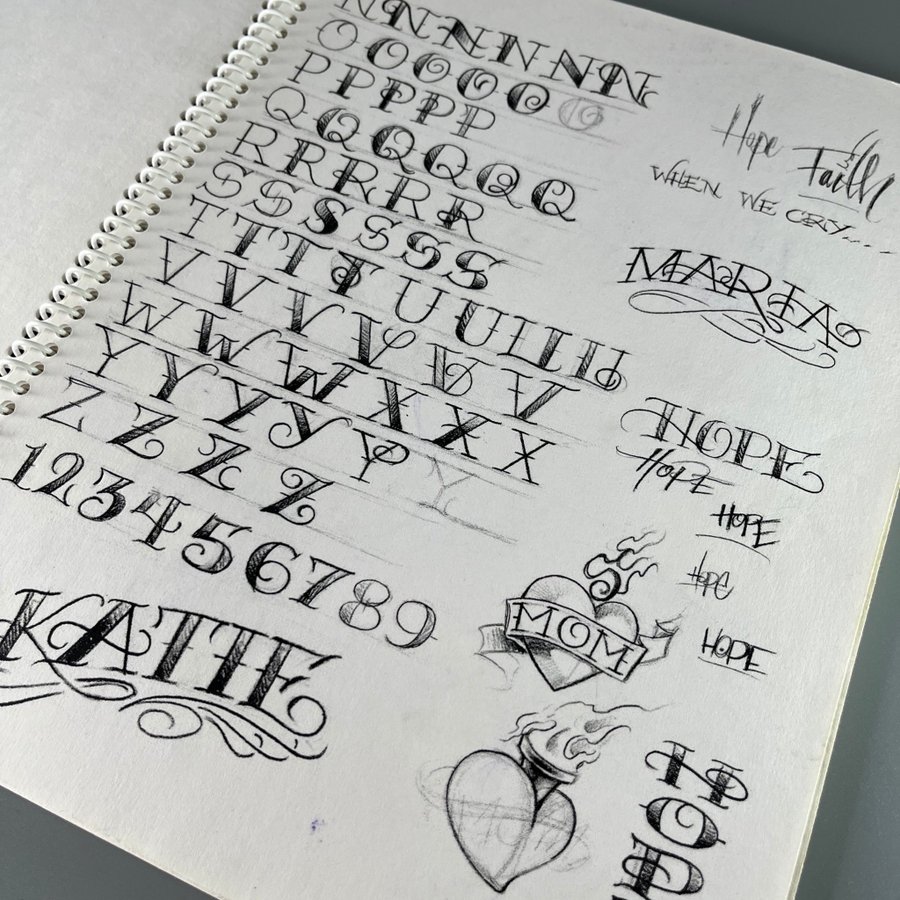 N N N N N N
O O O O O O
P P P P P
Q Q Q Q Q Q
R R R R R
S S S S S S
T T T T U U U U
V V V V V V
W W W X X X
Y Y Y Y Y Y
Z Z Z Z
1 2 3 4 5 6 7 8 9
KATIE
Hope
Faith
WHEN WE CRY.....
MARIA
HOPE
HOPE
HOPE
HOPE
HOPE
MOM